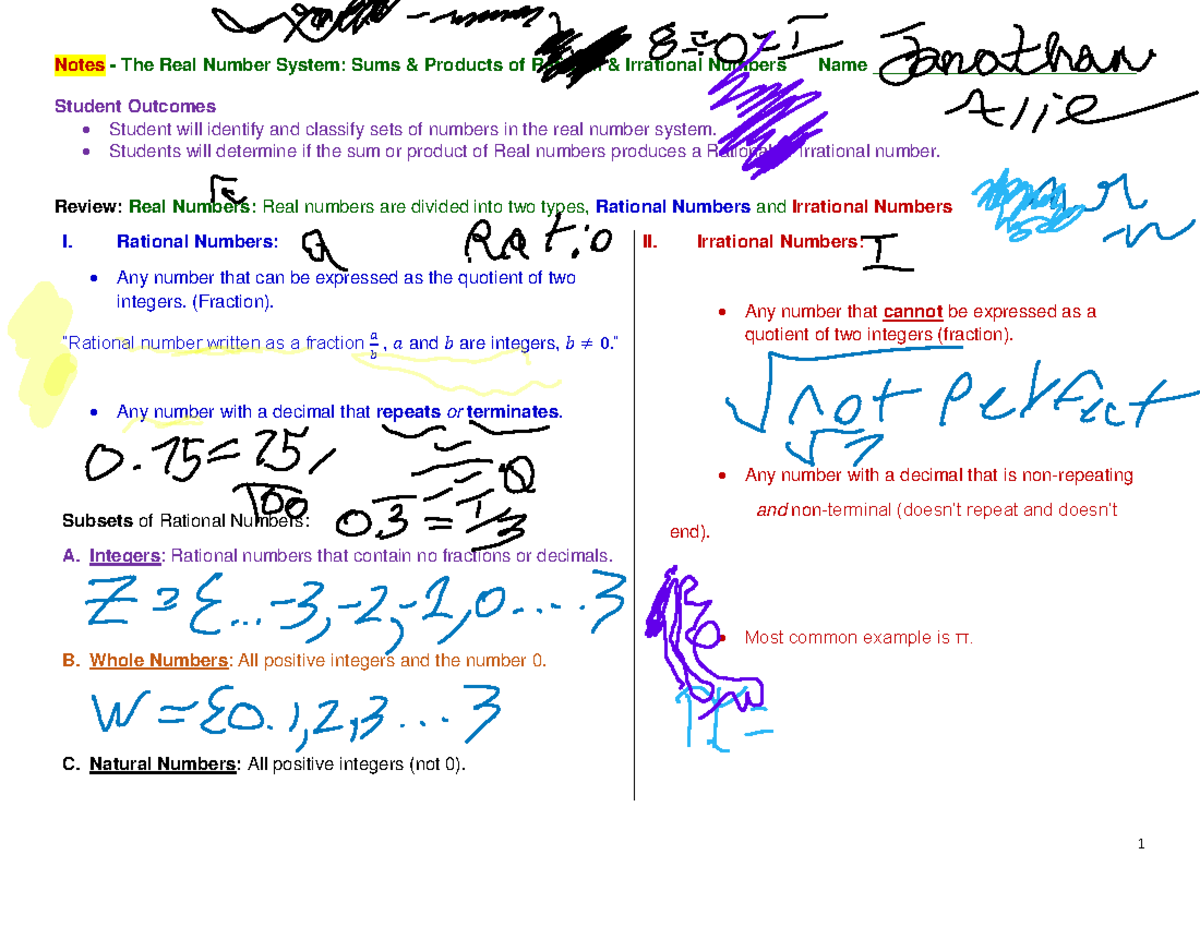 8÷0=I
Notes - The Real Number System: Sums & Products of & Irrational Numbers Name Jonathan
Allie
Student Outcomes
• Student will identify and classify sets of numbers in the real number system.
• Students will determine if the sum or product of Real numbers produces a Rational Irrational number.
Review: Real Numbers: Real numbers are divided into two types, Rational Numbers and Irrational Numbers
I. Rational Numbers: Q Ratio
• Any number that can be expressed as the quotient of two
integers. (Fraction).
"Rational number written as a fraction a/b , a and b are integers, b ≠ 0."
• Any number with a decimal that repeats or terminates.
0.75=75/100
0.3=1/3
Subsets of Rational Numbers:
A. Integers: Rational numbers that contain no fractions or decimals.
Z = {...-3,-2,-1,0....}
B. Whole Numbers: All positive integers and the number 0.
W={0.1,2,3...}
C. Natural Numbers: All positive integers (not 0).
II. Irrational Numbers: I
• Any number that cannot be expressed as a
quotient of two integers (fraction).
√not perfect
√7
• Any number with a decimal that is non-repeating
and non-terminal (doesn't repeat and doesn't
end).
• Most common example is π.
1